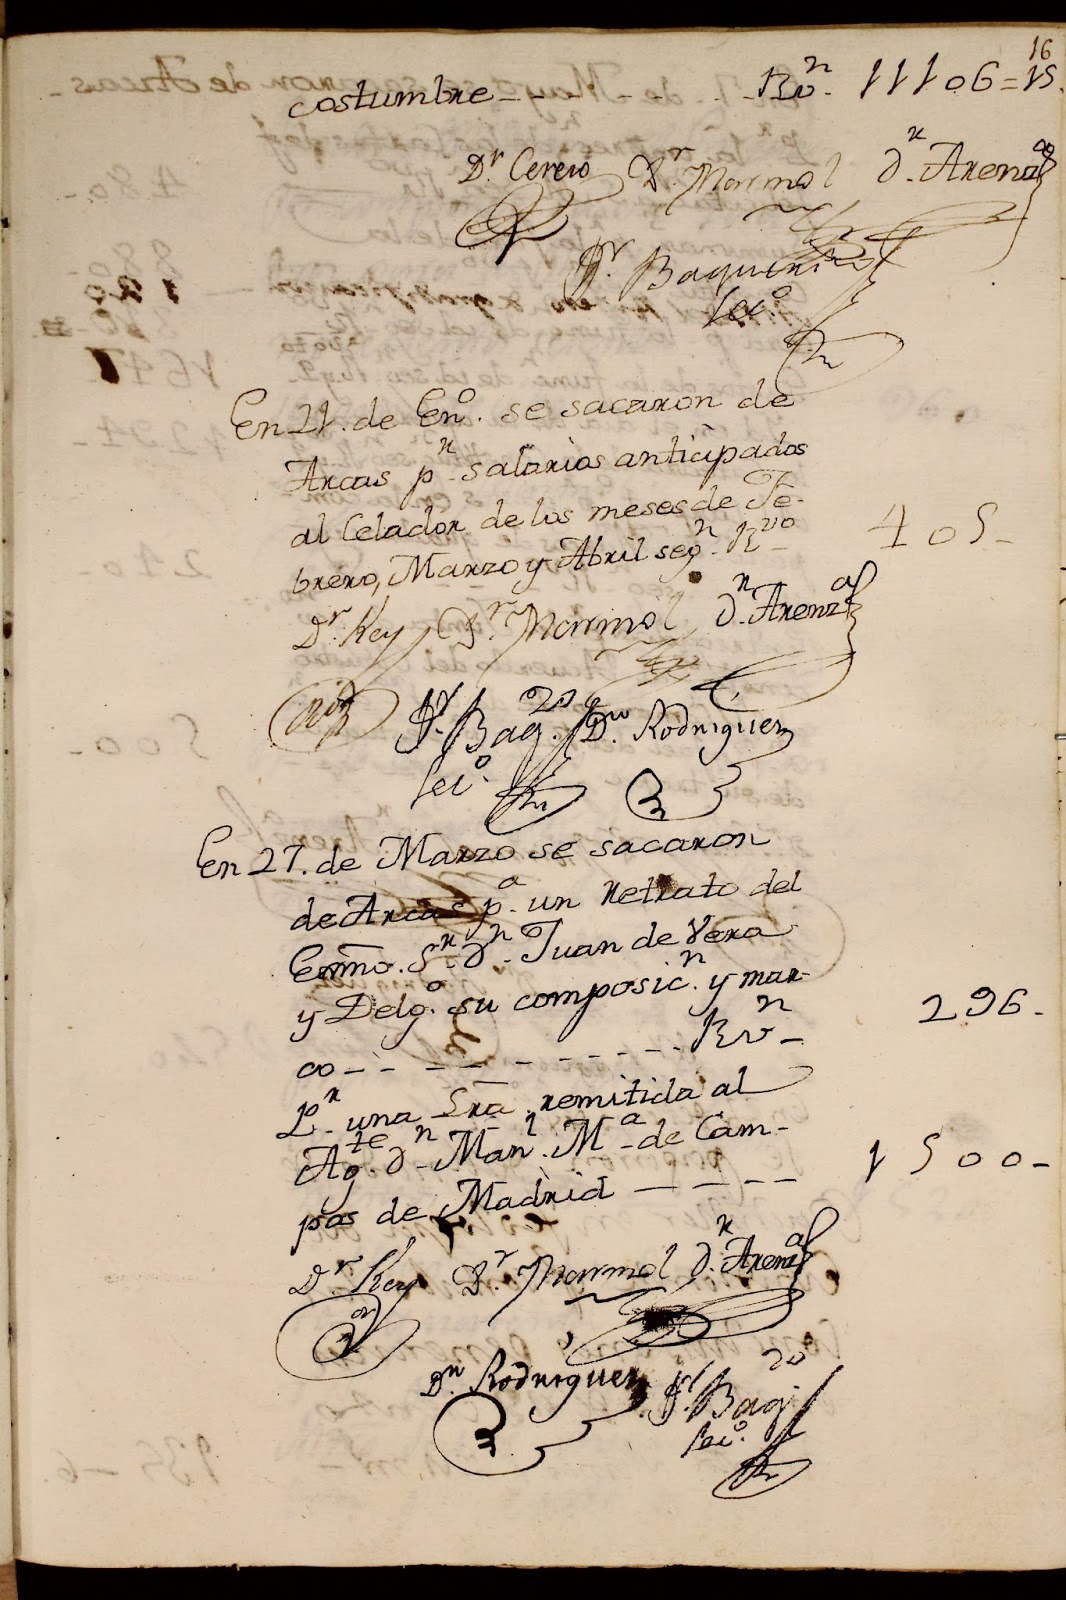 16
costumbre - - - - Rvⁿ. 11106=15.
Dʳ. Cerero Dʳ. Marmol Dⁿ. Arenzaª
Dʳ. Baquerizo
Secº.
En 21. de Enº. se sacaron de
Arcas pʳ. salarios anticipados
al Celador de los meses de Fe-
brero, Marzo y Abril segⁿ. Rvo - 405-
Dʳ. Key Dʳ. Marmol Dⁿ. Arenzª
Dʳ. Baqzo. Dⁿ. Rodriguez
Secº.
En 27. de Marzo se sacaron
de Arcas pª. un Retrato del
Exm̃o. Sʳ. Dⁿ. Juan de Vera
y Delgº. su composicⁿ. y mar-
co - - - - - - - - Rvⁿ - 296-
Pʳ. una Lra. remitida al
Agᵗᵉ. Dⁿ. Manˡ. Mª. de Cam-
pos de Madrid - - - - 1500-
Dʳ. Key Dʳ. Marmol Dⁿ. Arenzª
Dⁿ. Rodriguez Dʳ. Baqzo
Secº.